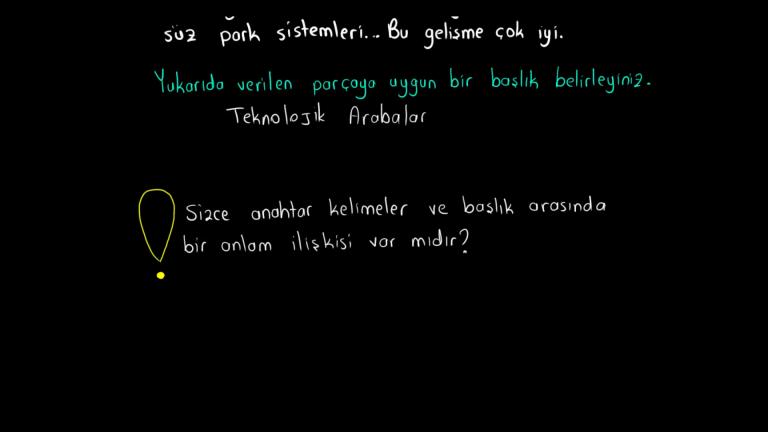 süz park sistemleri... Bu gelişme çok iyi.
Yukarıda verilen parçaya uygun bir başlık belirleyiniz.
Teknolojik Arabalar
Sizce anahtar kelimeler ve başlık arasında
bir anlam ilişkisi var mıdır?